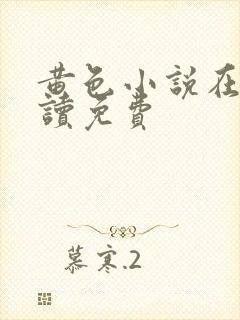 黄色小說在
讀免費
慕寒.2